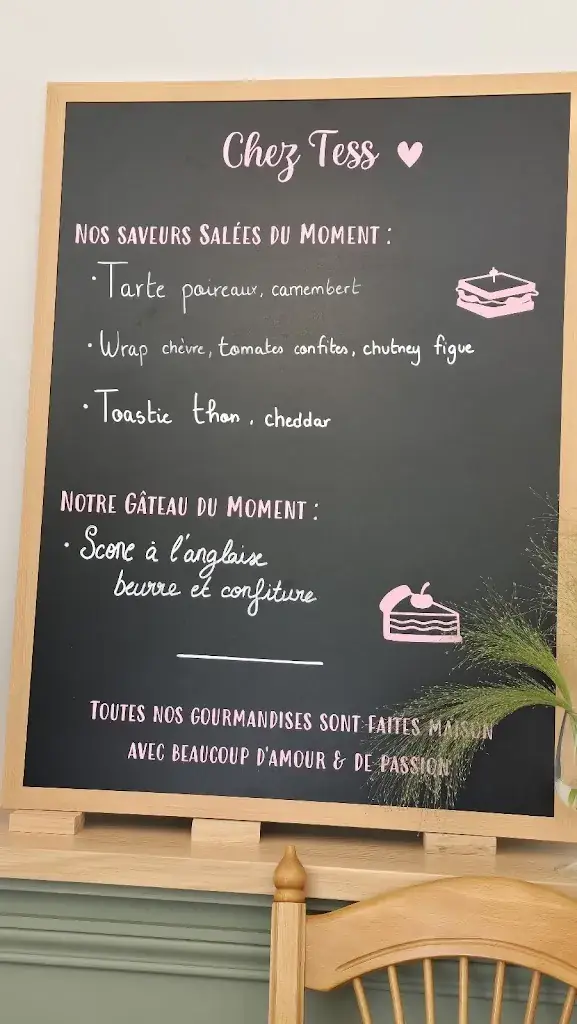 Chez Tess ♥
Nos saveurs Salées du Moment :
· Tarte poireaux, camembert
· Wrap chèvre, tomates confites, chutney figue
· Toastie thon, cheddar
Notre Gâteau du Moment :
· Scone à l'anglaise
beurre et confiture
Toutes nos gourmandises sont faites maison
avec beaucoup d'amour & de passion